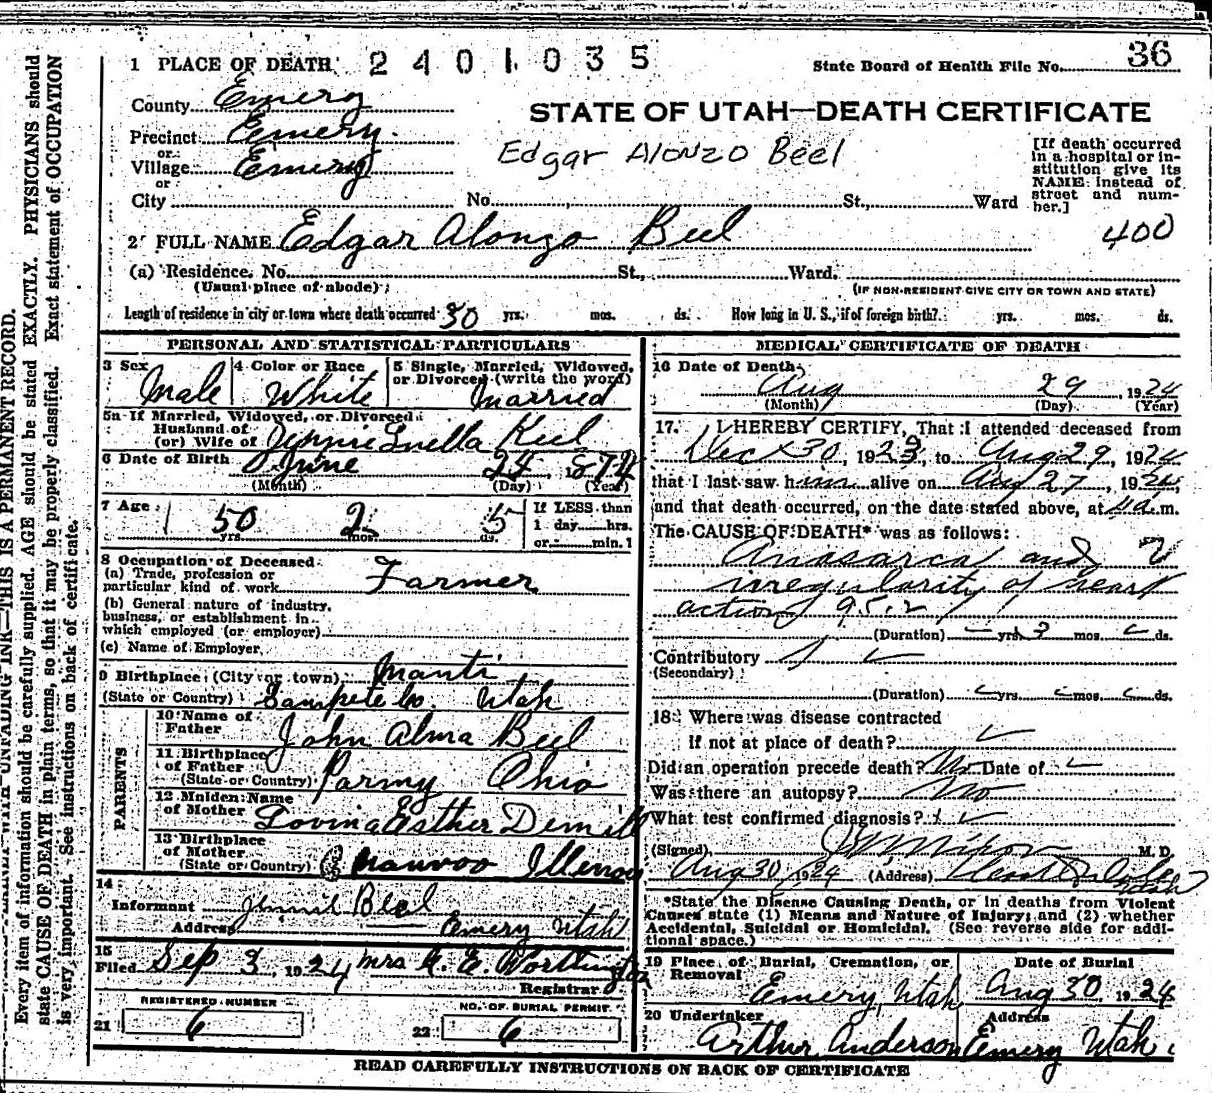 36
1 PLACE OF DEATH 2401035 State Board of Health File No.
County Emery
STATE OF UTAH—DEATH CERTIFICATE
Precinct Emery.
or
Edgar Alonzo Beel
[If death occurred in a hospital or institution give its NAME instead of street and number.]
Village Emery
or
City No. St., Ward
400
2 FULL NAME Edgar Alonzo Beel
(a) Residence. No. St., Ward.
(Usual place of abode) (IF NON-RESIDENT GIVE CITY OR TOWN AND STATE)
Length of residence in city or town where death occurred 30 yrs. mos. ds. How long in U. S., if of foreign birth? yrs. mos. ds.
PERSONAL AND STATISTICAL PARTICULARS
3 Sex Male
4 Color or Race White
5 Single, Married, Widowed, or Divorced (write the word) Married
5a If Married, Widowed, or Divorced
Husband of
(or) Wife of Jennie Luella
6 Date of Birth June 24, 1874
(Month) (Day) (Year)
7 Age 50 2 5
yrs. mos. ds.
If LESS than
1 day hrs.
or min.
8 Occupation of Deceased
(a) Trade, profession or
particular kind of work Farmer
(b) General nature of industry,
business, or establishment in
which employed (or employer)
(c) Name of Employer
9 Birthplace (City or town) Manti
(State or Country) Sanpete Co. Utah
PARENTS
10 Name of
Father John Alma Beel
11 Birthplace
of Father
(State or Country) Ohio
12 Maiden Name
of Mother Lovina Esther Demill
13 Birthplace
of Mother
(State or Country) Nauvoo Illenois
14
Informant Jennie Beel
Address Emery Utah
15
Filed Sep 3, 1924 Mrs. E. Worthington
Registrar
REGISTERED NUMBER
21 6
NO. OF BURIAL PERMIT
22 6
MEDICAL CERTIFICATE OF DEATH
16 Date of Death
Aug 29, 1924
(Month) (Day) (Year)
17. I HEREBY CERTIFY, That I attended deceased from
Dec 30, 1923, to Aug 29, 1924
that I last saw him alive on Aug 27, 1924,
and that death occurred, on the date stated above, at 4 a.m.
The CAUSE OF DEATH* was as follows:
Anasarca and
irregularity of heart
action 95.2
(Duration) yrs. 3 mos. ds.
Contributory
(Secondary)
(Duration) yrs. mos. ds.
18 Where was disease contracted
If not at place of death?
Did an operation precede death? No Date of
Was there an autopsy? No
What test confirmed diagnosis?
(Signed) Nixon M. D.
Aug 30, 1924 (Address) Castle Dale
Utah
*State the Disease Causing Death, or in deaths from Violent
Causes state (1) Means and Nature of Injury; and (2) whether
Accidental, Suicidal or Homicidal. (See reverse side for addi-
tional space.)
19 Place of Burial, Cremation, or
Removal
Emery, Utah
Date of Burial
Aug 30, 1924
20 Undertaker
Arthur Anderson
Address
Emery Utah
READ CAREFULLY INSTRUCTIONS ON BACK OF CERTIFICATE
UNFADING INK—THIS IS A PERMANENT RECORD.
Every item of information should be carefully supplied. AGE should be stated EXACTLY. PHYSICIANS should
state CAUSE OF DEATH in plain terms, so that it may be properly classified. Exact statement of OCCUPATION
is very important. See instructions on back of certificate.